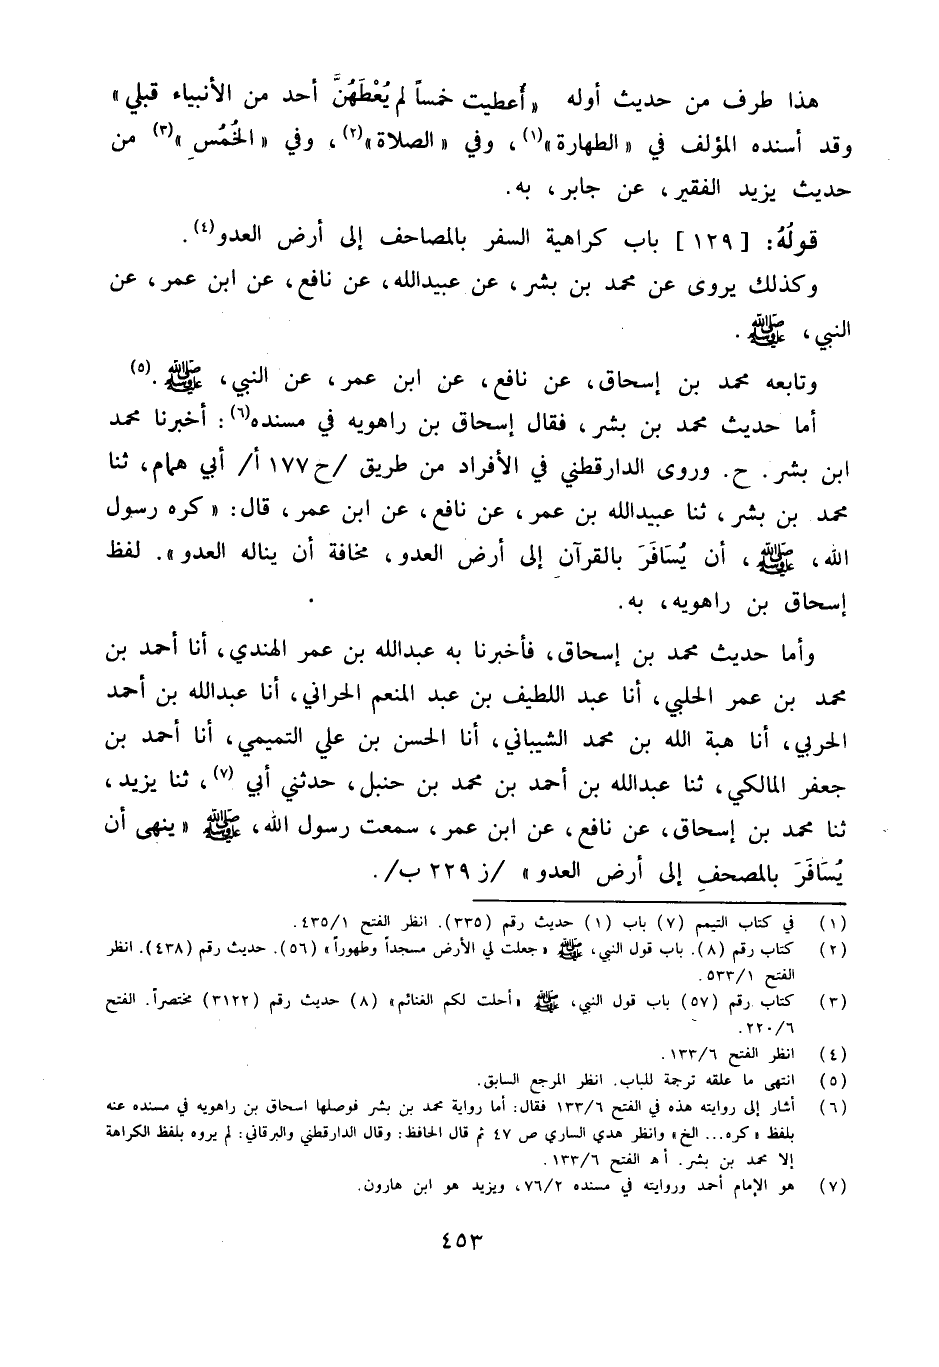 هذا طرف من حديث أوله « أُعطيت خمساً لم يُعْطَهُنَّ أحد من الأنبياء قبلي »
وقد أسنده المؤلف في « الطهارة »(١)، وفي « الصلاة »(٢)، وفي « الخُمُسِ »(٣) من
حديث يزيد الفقير، عن جابر، به.
قولُهُ: [ ١٢٩ ] باب كراهية السفر بالمصاحف إلى أرض العدو(٤).
وكذلك يروى عن محمد بن بشر، عن عبيدالله، عن نافع، عن ابن عمر، عن
النبي، ﷺ.
وتابعه محمد بن إسحاق، عن نافع، عن ابن عمر، عن النبي، ﷺ.(٥)
أما حديث محمد بن بشر، فقال إسحاق بن راهويه في مسنده(٦): أخبرنا محمد
ابن بشر. ح. وروى الدارقطني في الأفراد من طريق /ح ١٧٧ أ/ أبي همام، ثنا
محمد بن بشر، ثنا عبيدالله بن عمر، عن نافع، عن ابن عمر، قال: « كره رسول
الله، ﷺ، أن يُسَافَرَ بالقرآنِ إلى أرض العدو، مخافة أن يناله العدو ». لفظ
إسحاق بن راهويه، به.
وأما حديث محمد بن إسحاق، فأخبرنا به عبدالله بن عمر الهندي، أنا أحمد بن
محمد بن عمر الحلبي، أنا عبد اللطيف بن عبد المنعم الحراني، أنا عبدالله بن أحمد
الحربي، أنا هبة الله بن محمد الشيباني، أنا الحسن بن علي التميمي، أنا أحمد بن
جعفر المالكي، ثنا عبدالله بن أحمد بن محمد بن حنبل، حدثني أبي (٧)، ثنا يزيد،
ثنا محمد بن إسحاق، عن نافع، عن ابن عمر، سمعت رسول الله، ﷺ « ينهى أن
يُسَافَرَ بالمصحفِ إلى أرض العدو » /ز ٢٢٩ ب/.
(١) في كتاب التيمم (٧) باب (١) حديث رقم (٣٣٥). انظر الفتح ٤٣٥/١.
(٢) كتاب رقم (٨). باب قول النبي، ﷺ « جعلت لي الأرض مسجداً وطهوراً » (٥٦). حديث رقم (٤٣٨). انظر
الفتح ٥٣٣/١.
(٣) كتاب رقم (٥٧) باب قول النبي، ﷺ «أحلت لكم الغنائم» (٨) حديث رقم (٣١٢٢) مختصراً. الفتح
٢٢٠/٦.
(٤) انظر الفتح ١٣٣/٦.
(٥) انتهى ما علقه ترجمة للباب. انظر المرجع السابق.
(٦) أشار إلى روايته هذه في الفتح ١٣٣/٦ فقال: أما رواية محمد بن بشر فوصلها اسحاق بن راهويه في مسنده عنه
بلفظ « كره... الخ » وانظر هدي الساري ص ٤٧ ثم قال الحافظ: وقال الدارقطني والبرقاني: لم يروه بلفظ الكراهة
إلا محمد بن بشر. أهـ الفتح ١٣٣/٦.
(٧) هو الإمام أحمد وروايته في مسنده ٧٦/٢، ويزيد هو ابن هارون.
٤٥٣